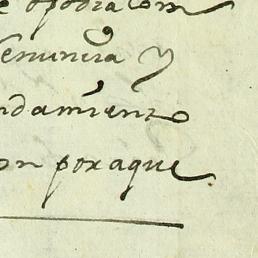 e opodia com
enuncia y
ndamiento
on poraque